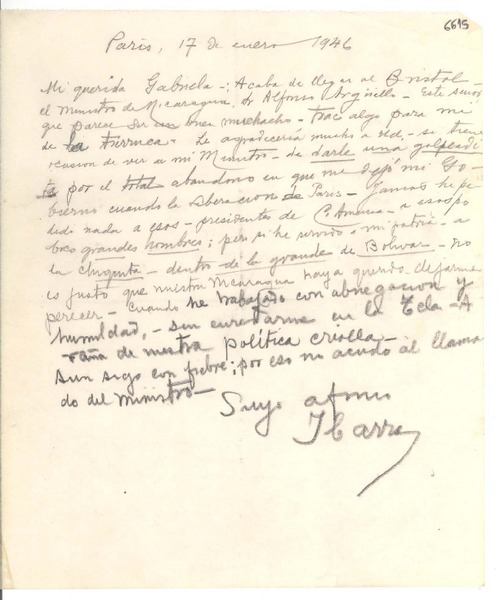 6615
París, 17 de enero 1946
Mi querida Gabriela -: Acaba de llegar al Bristol -
el Ministro de Nicaragua, Dr Alfonso Argüello - Este señor
que parece ser un buen muchacho - trae algo para mi
de la tierruca - Le agradecería mucho a Ud. - si tiene
ocasion de ver a mi Ministro - de darle una
por el total abandono en que me dejó mi Go-
bierno cuando la liberacion de Paris - Jamas he pe-
dido nada a esos - presidentes de C. America - a esos po
bres grandes hombres; pero si he servido a mi patria - a
la chiquita - dentro de la grande de Bolivar - no
es justo que nuestra Nicaragua haya querido dejarme
perecer - cuando he trabajado con abnegacion y
humildad, - sin enredarme en la Tela - A
raña de nuestra politica criolla -
Aun sigo con fiebre; por eso no acudo al llama
do del Ministro -
Suyo afmo
Ibarra